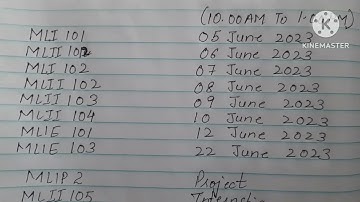 (10.00AM To 1.00PM)
KINEMASTER
MLI 101 05 June 2023
MLII 102 06 June 2023
MLI 102 07 June 2023
MLII 102 08 June 2023
MLII 103 09 June 2023
MLII 104 10 June 2023
MLIE 101 12 June 2023
MLIE 103 22 June 2023
MLIP 2 Project
MLII 105